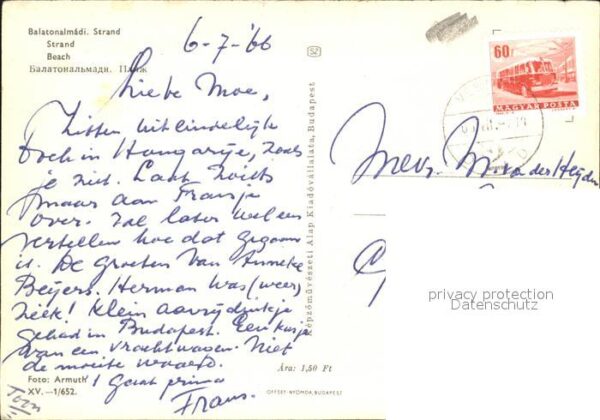 Balatonalmádi. Strand
Strand
Beach
Балатональмади. Пляж
6-7-'66
Liebe Moe,
Zitten uiteindelijk
toch in Hongarije, zoals
je ziet. Laat zoiets
maar aan Fransje
over. Zal later wel eens
vertellen hoe dat gegaan
is. De groeten van Anneke
Beijers. Herman was (weer)
ziek! Klein aanrijdinkje
gehad in Budapest. Een kusje
van een vrachtwagen. Niet
de moeite waard.
! Gaat prima
Frans.
Toon
Foto: Armuth
XV.—1/652.
Képzőművészeti Alap Kiadóvállalata, Budapest
Ára: 1,50 Ft
OFFSET-NYOMDA, BUDAPEST
SZ
60
MAGYAR POSTA
Mevr. M. van der Heijden
privacy protection
Datenschutz